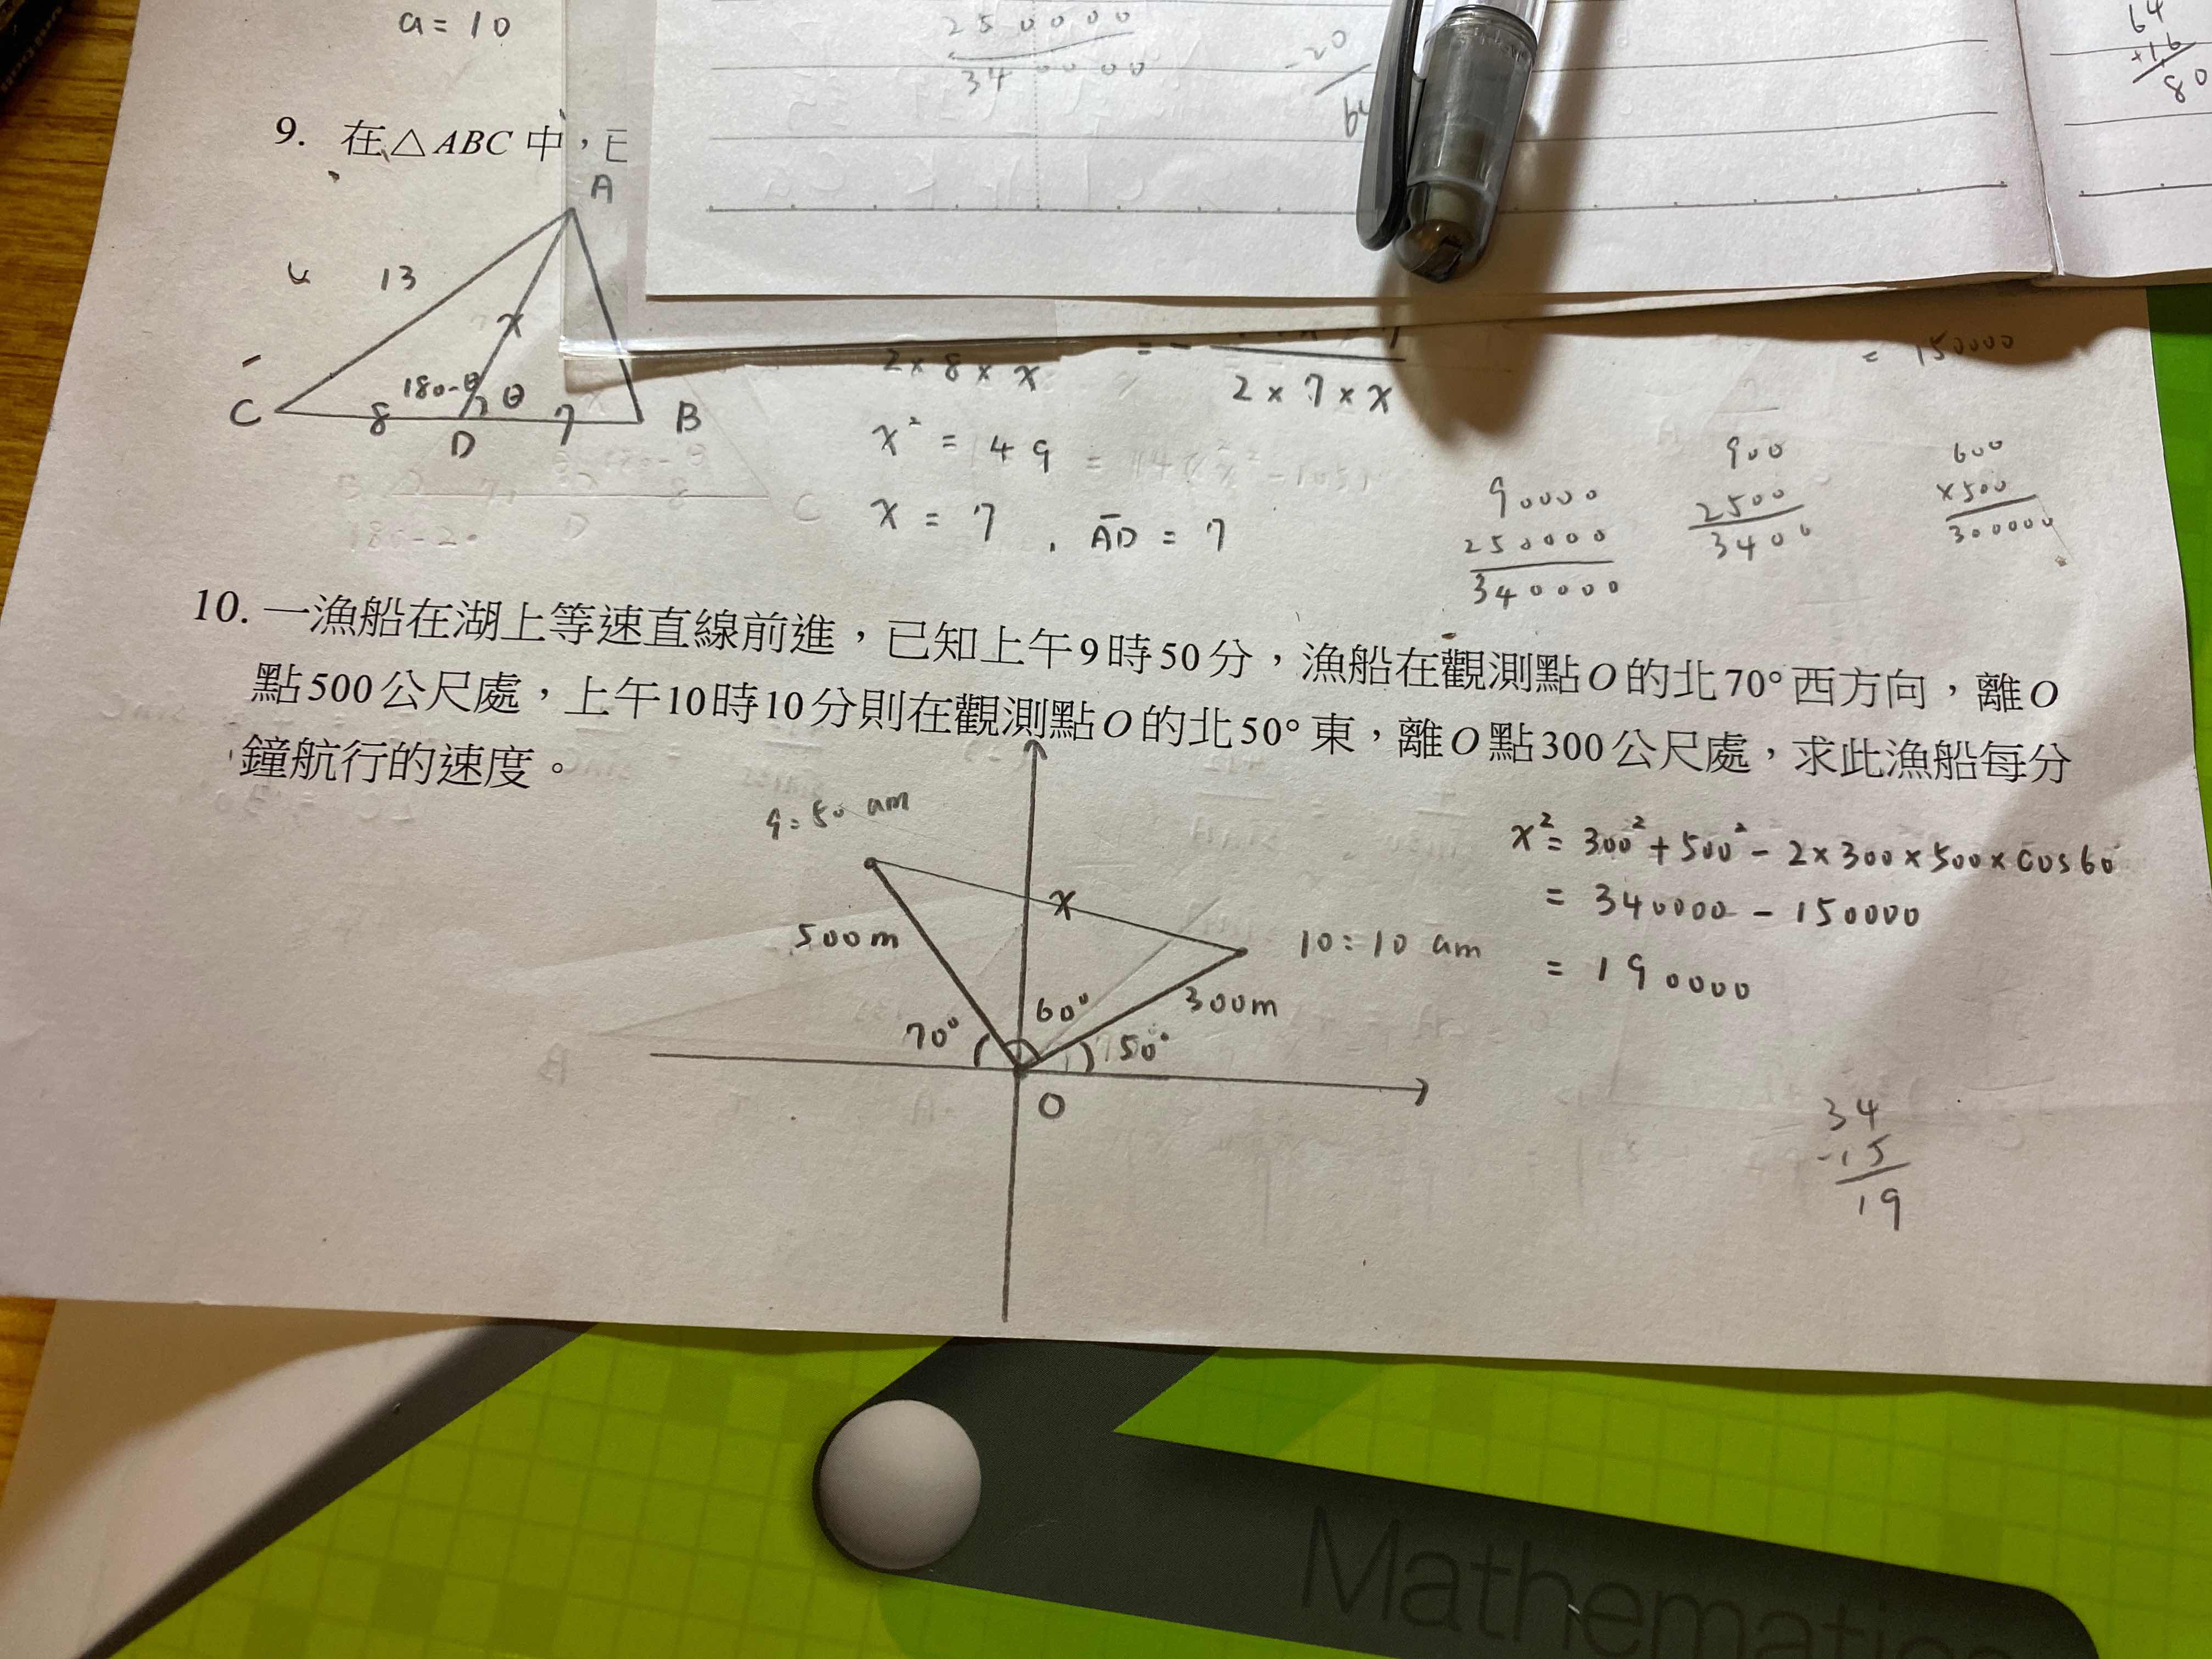 a = 10
250000
340000
-20
64
+16
80
9. 在△ABC 中,
A
13
x
180-θ
θ
C
8
D
7
B
2×8×x
= -
2×7×x
x² = 49
x = 7 , AD = 7
= 150000
90000
250000
340000
900
2500
3400
600
×500
300000
10. 一漁船在湖上等速直線前進,已知上午9時50分,漁船在觀測點O的北70°西方向,離O
點500公尺處,上午10時10分則在觀測點O的北50°東,離O點300公尺處,求此漁船每分
鐘航行的速度。
9:50 am
x
500m
10:10 am
300m
60°
70°
50°
O
x² = 300² + 500² - 2×300×500×cos60°
= 340000 - 150000
= 190000
34
-15
19
Mathematics